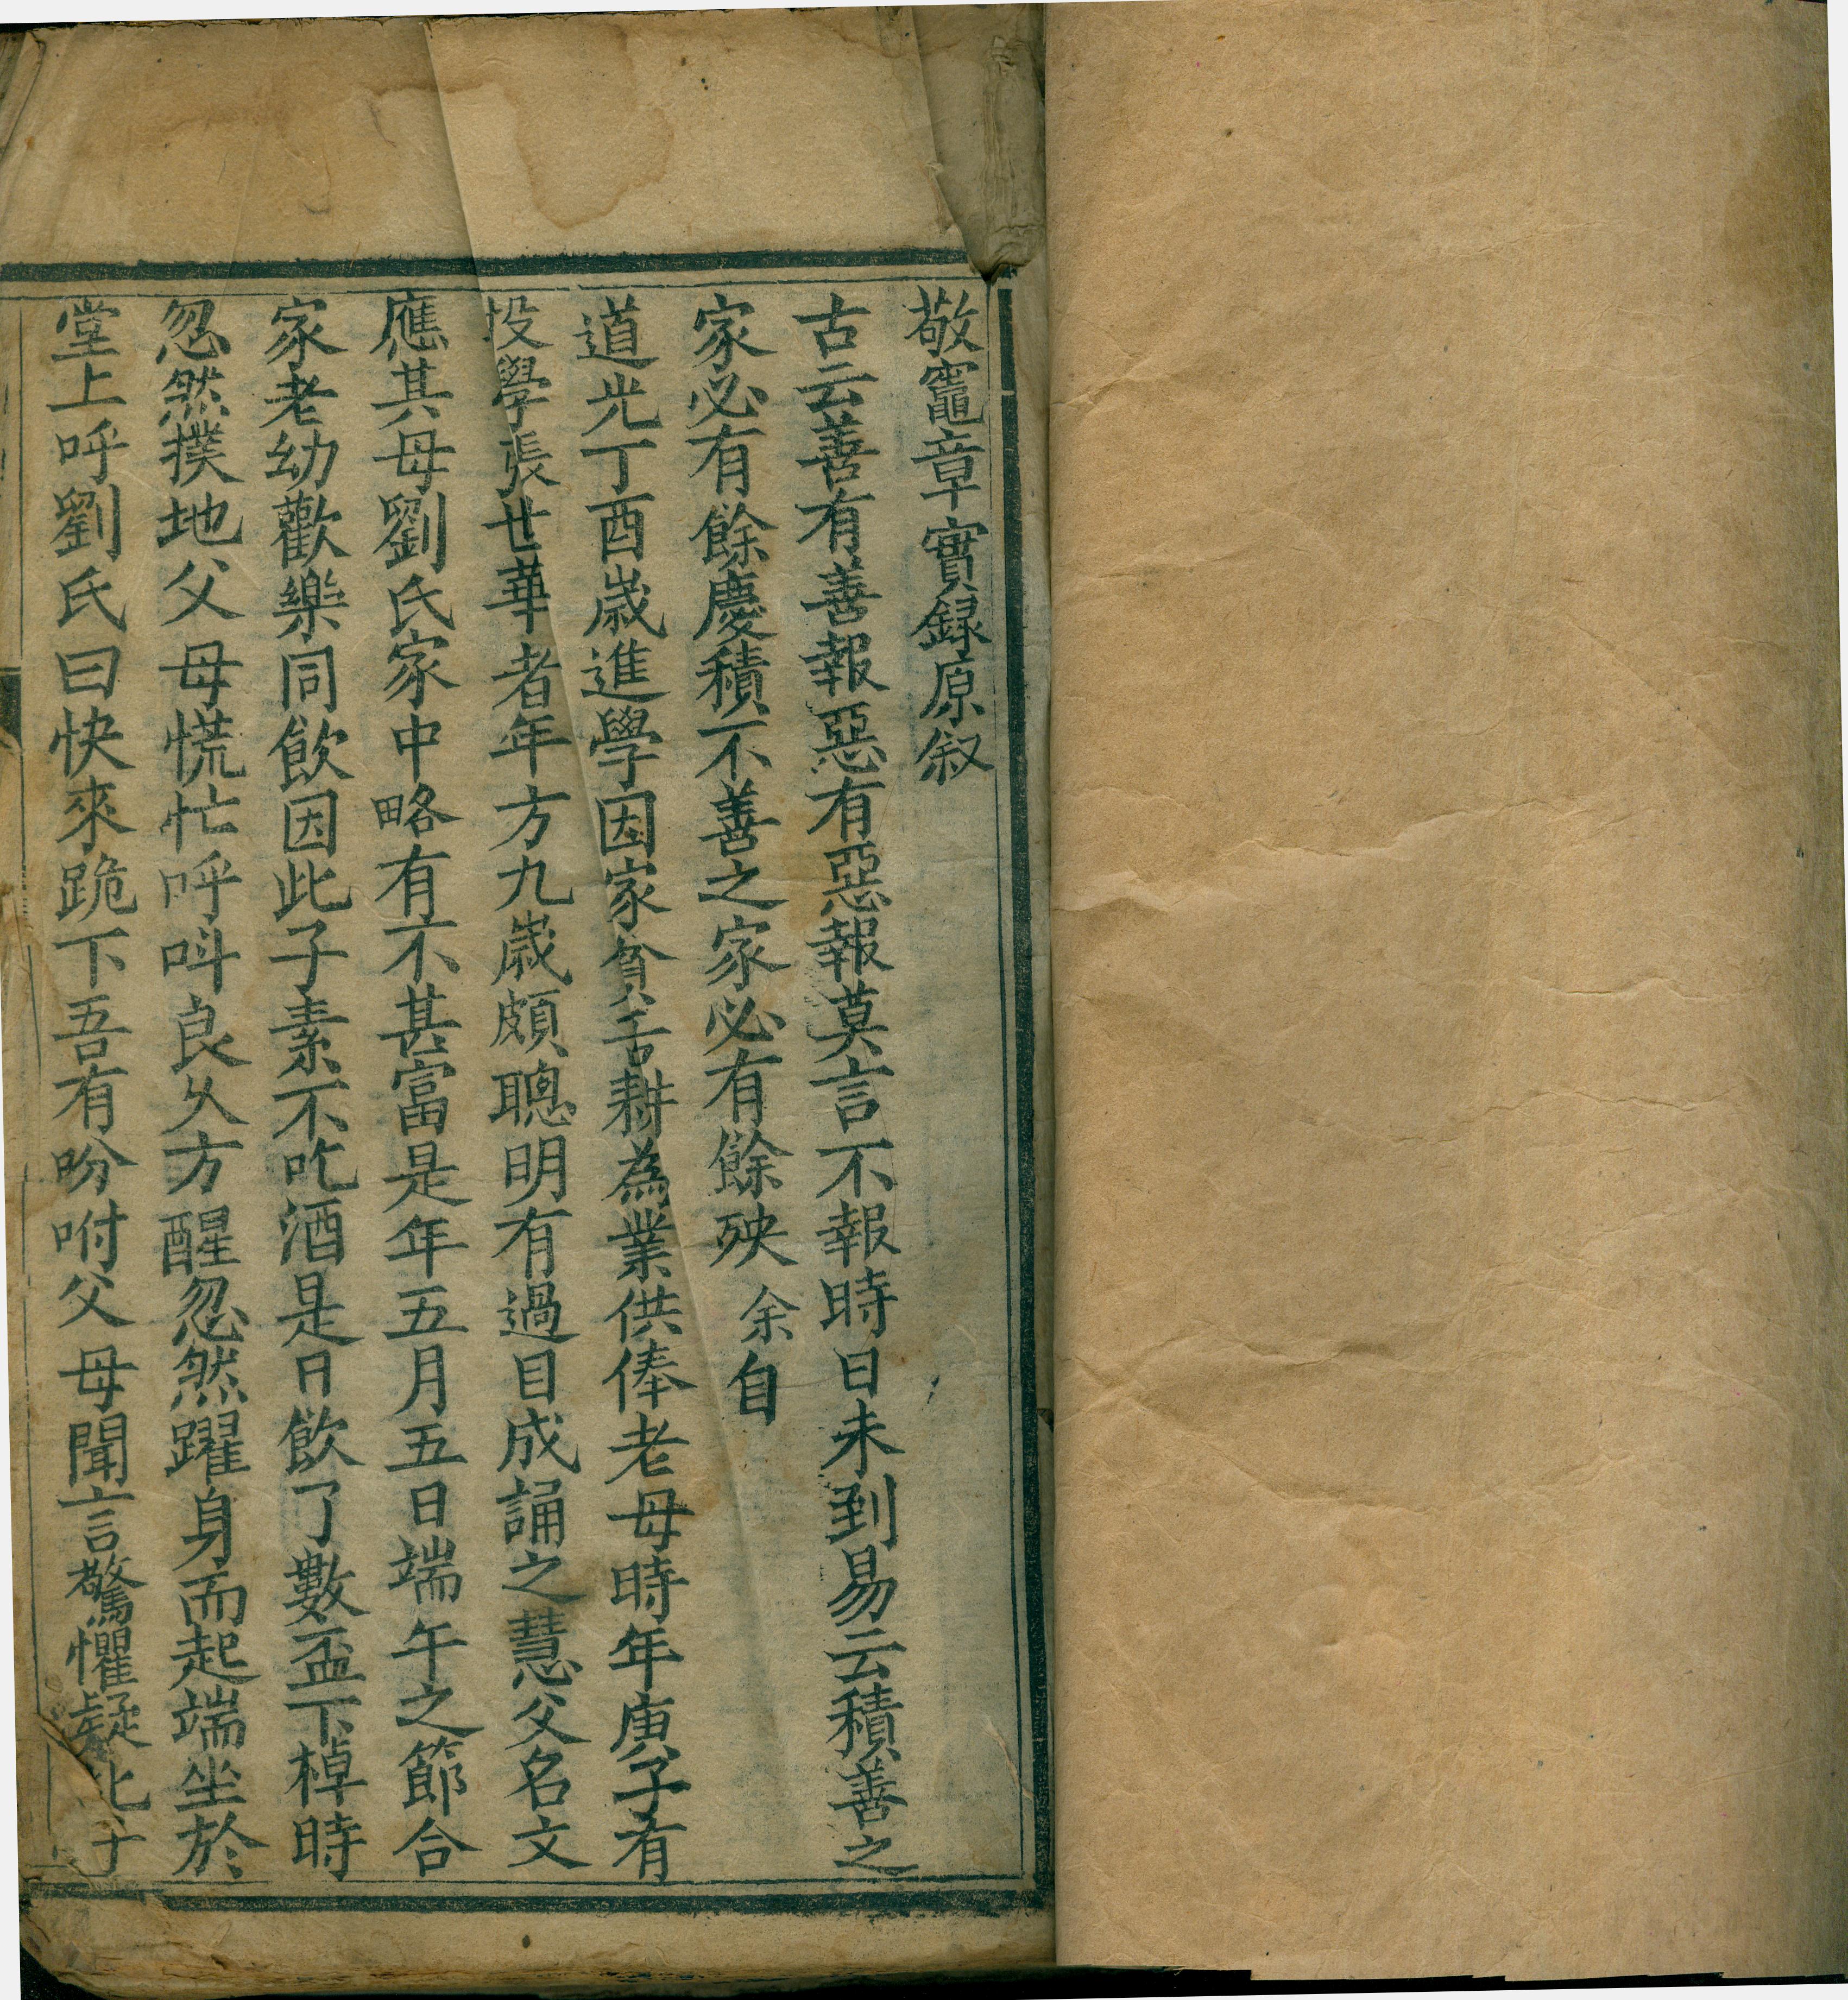 敬竈章實録原叙
古云善有善報惡有惡報莫言不報時日未到易云積善之
家必有餘慶積不善之家必有餘殃余自
道光丁酉歲進學因家貧舌耕為業供俸老母時年庚子有
投學張世華者年方九歲頗聰明有過目成誦之慧父名文
應其母劉氏家中略有不甚富是年五月五日端午之節合
家老幼歡樂同飲因此子素不吃酒是日飲了數盃下棹時
忽然撲地父母慌忙呼呌良久方醒忽然躍身而起端坐於
堂上呼劉氏曰快來跪下吾有吩咐父母聞言驚懼疑此子